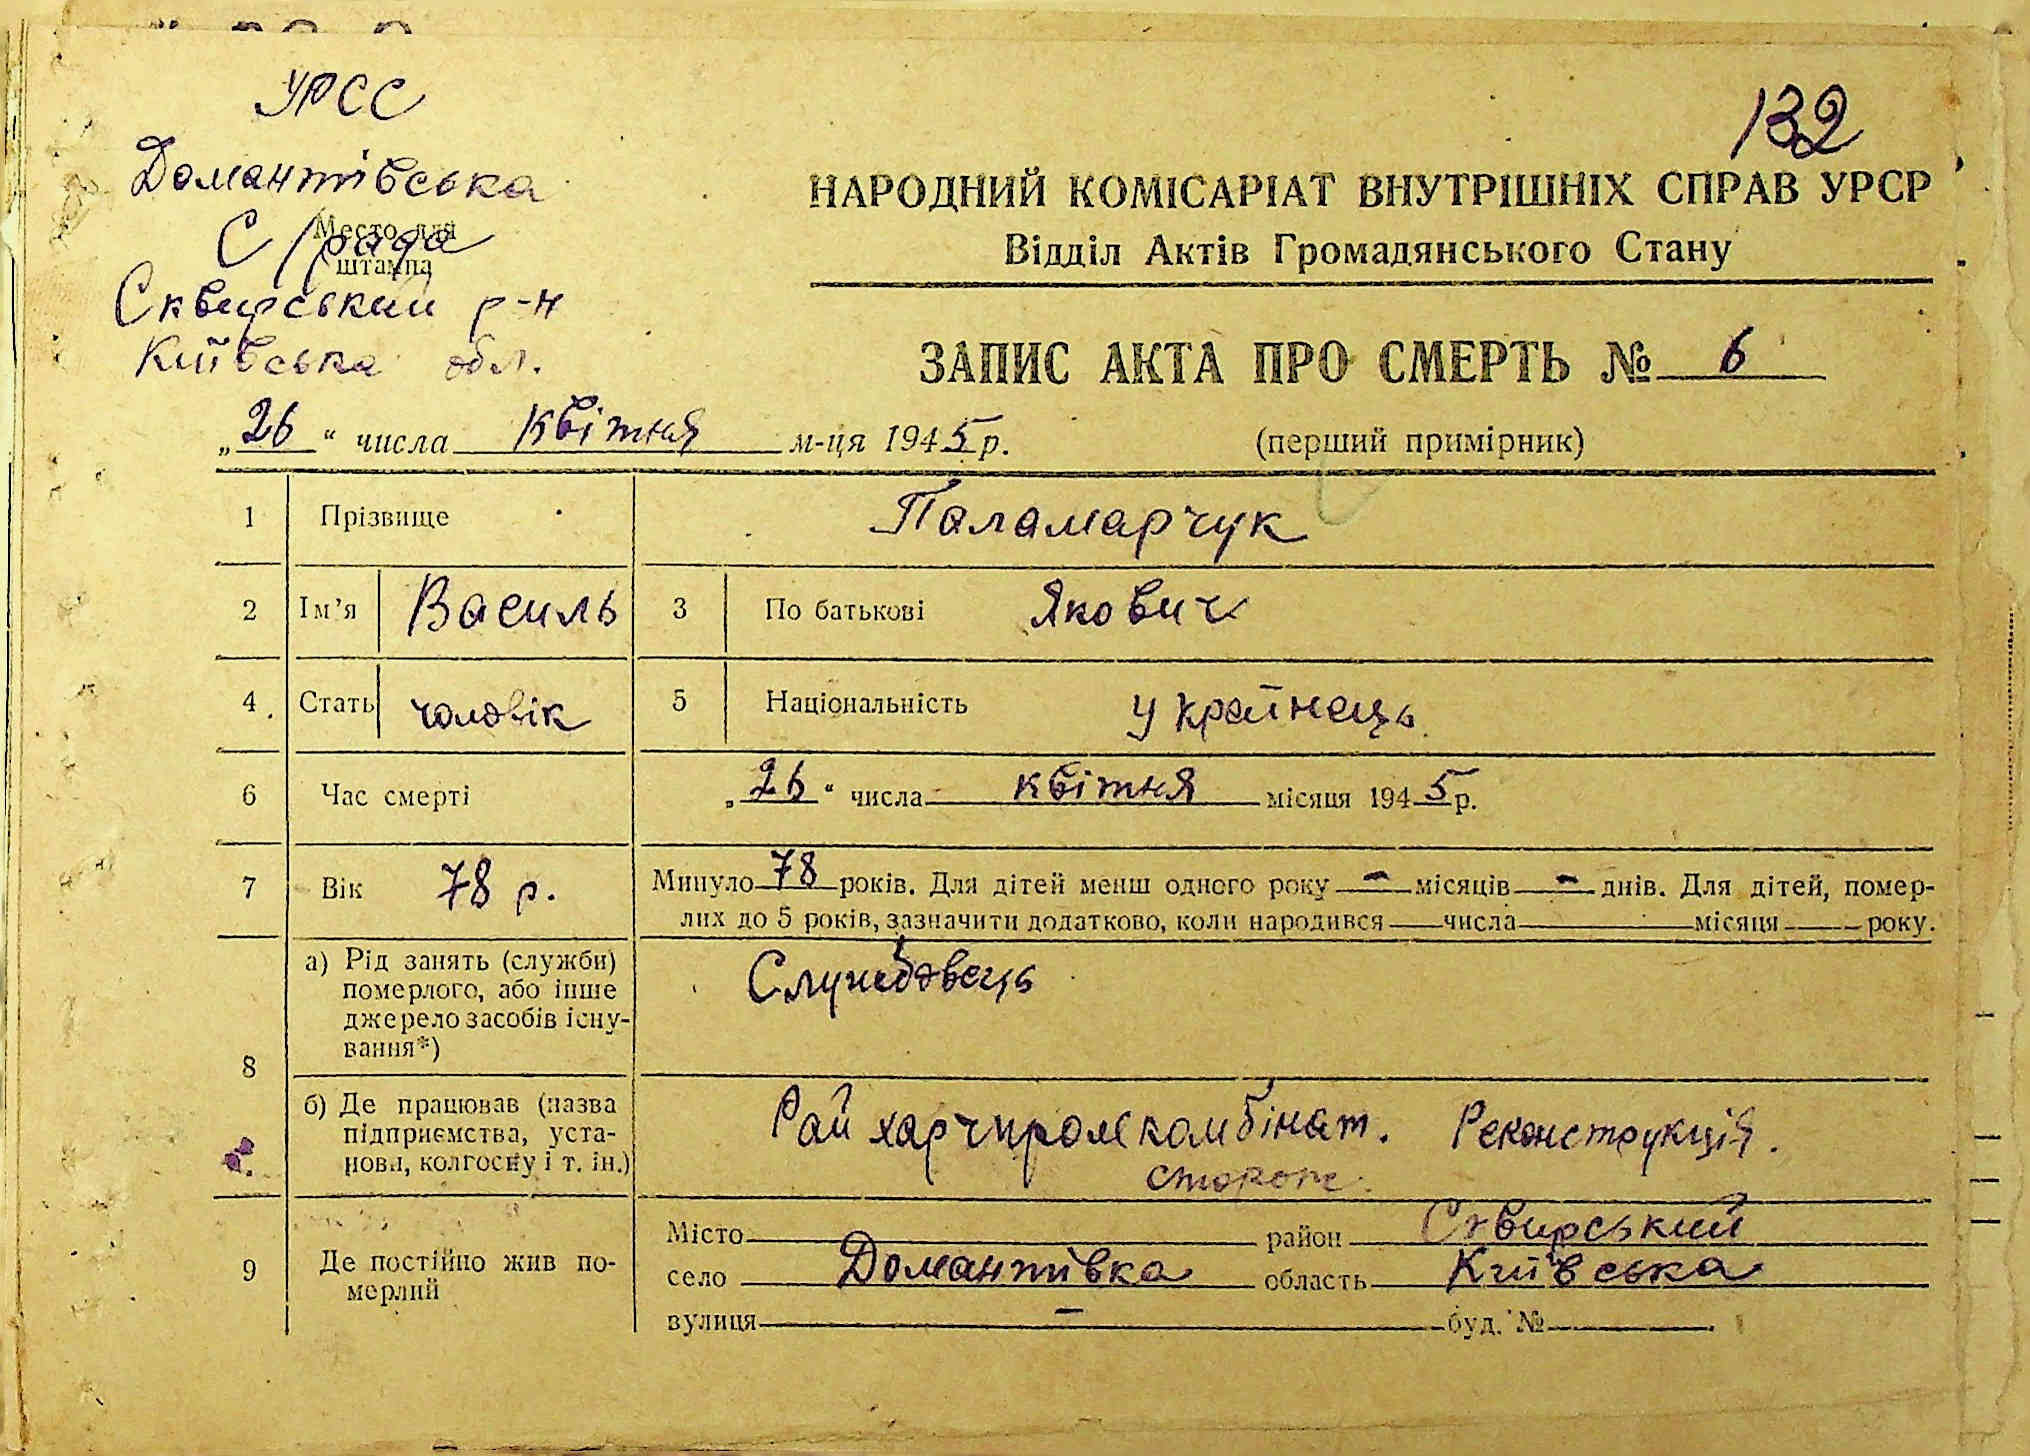 УРСС
132
Домантівська
С/рада
Место для
штампа
Сквирський р-н
Київська обл.
НАРОДНИЙ КОМІСАРІАТ ВНУТРІШНІХ СПРАВ УРСР
Відділ Актів Громадянського Стану
ЗАПИС АКТА ПРО СМЕРТЬ № 6
„26“ числа квітня м-ця 1945 р.
(перший примірник)
1 Прізвище Паламарчук
2 Ім’я Василь 3 По батькові Якович
4 Стать чоловік 5 Національність Українець
6 Час смерті „26“ числа квітня місяця 1945 р.
7 Вік 78 р. Минуло 78 років. Для дітей менш одного року - місяців - днів. Для дітей, помер-
лих до 5 років, зазначити додатково, коли народився числа місяця року.
8
а) Рід занять (служби)
померлого, або інше
джерело засобів існу-
вання*)
Службовець
б) Де працював (назва
підприємства, уста-
нови, колгоспу і т. ін.)
Рай харчпромкомбінат. Реконструкція.
сторож.
9 Де постійно жив по-
мерлий
Місто район Сквирський
село Домантівка область Київська
вулиця - буд. №